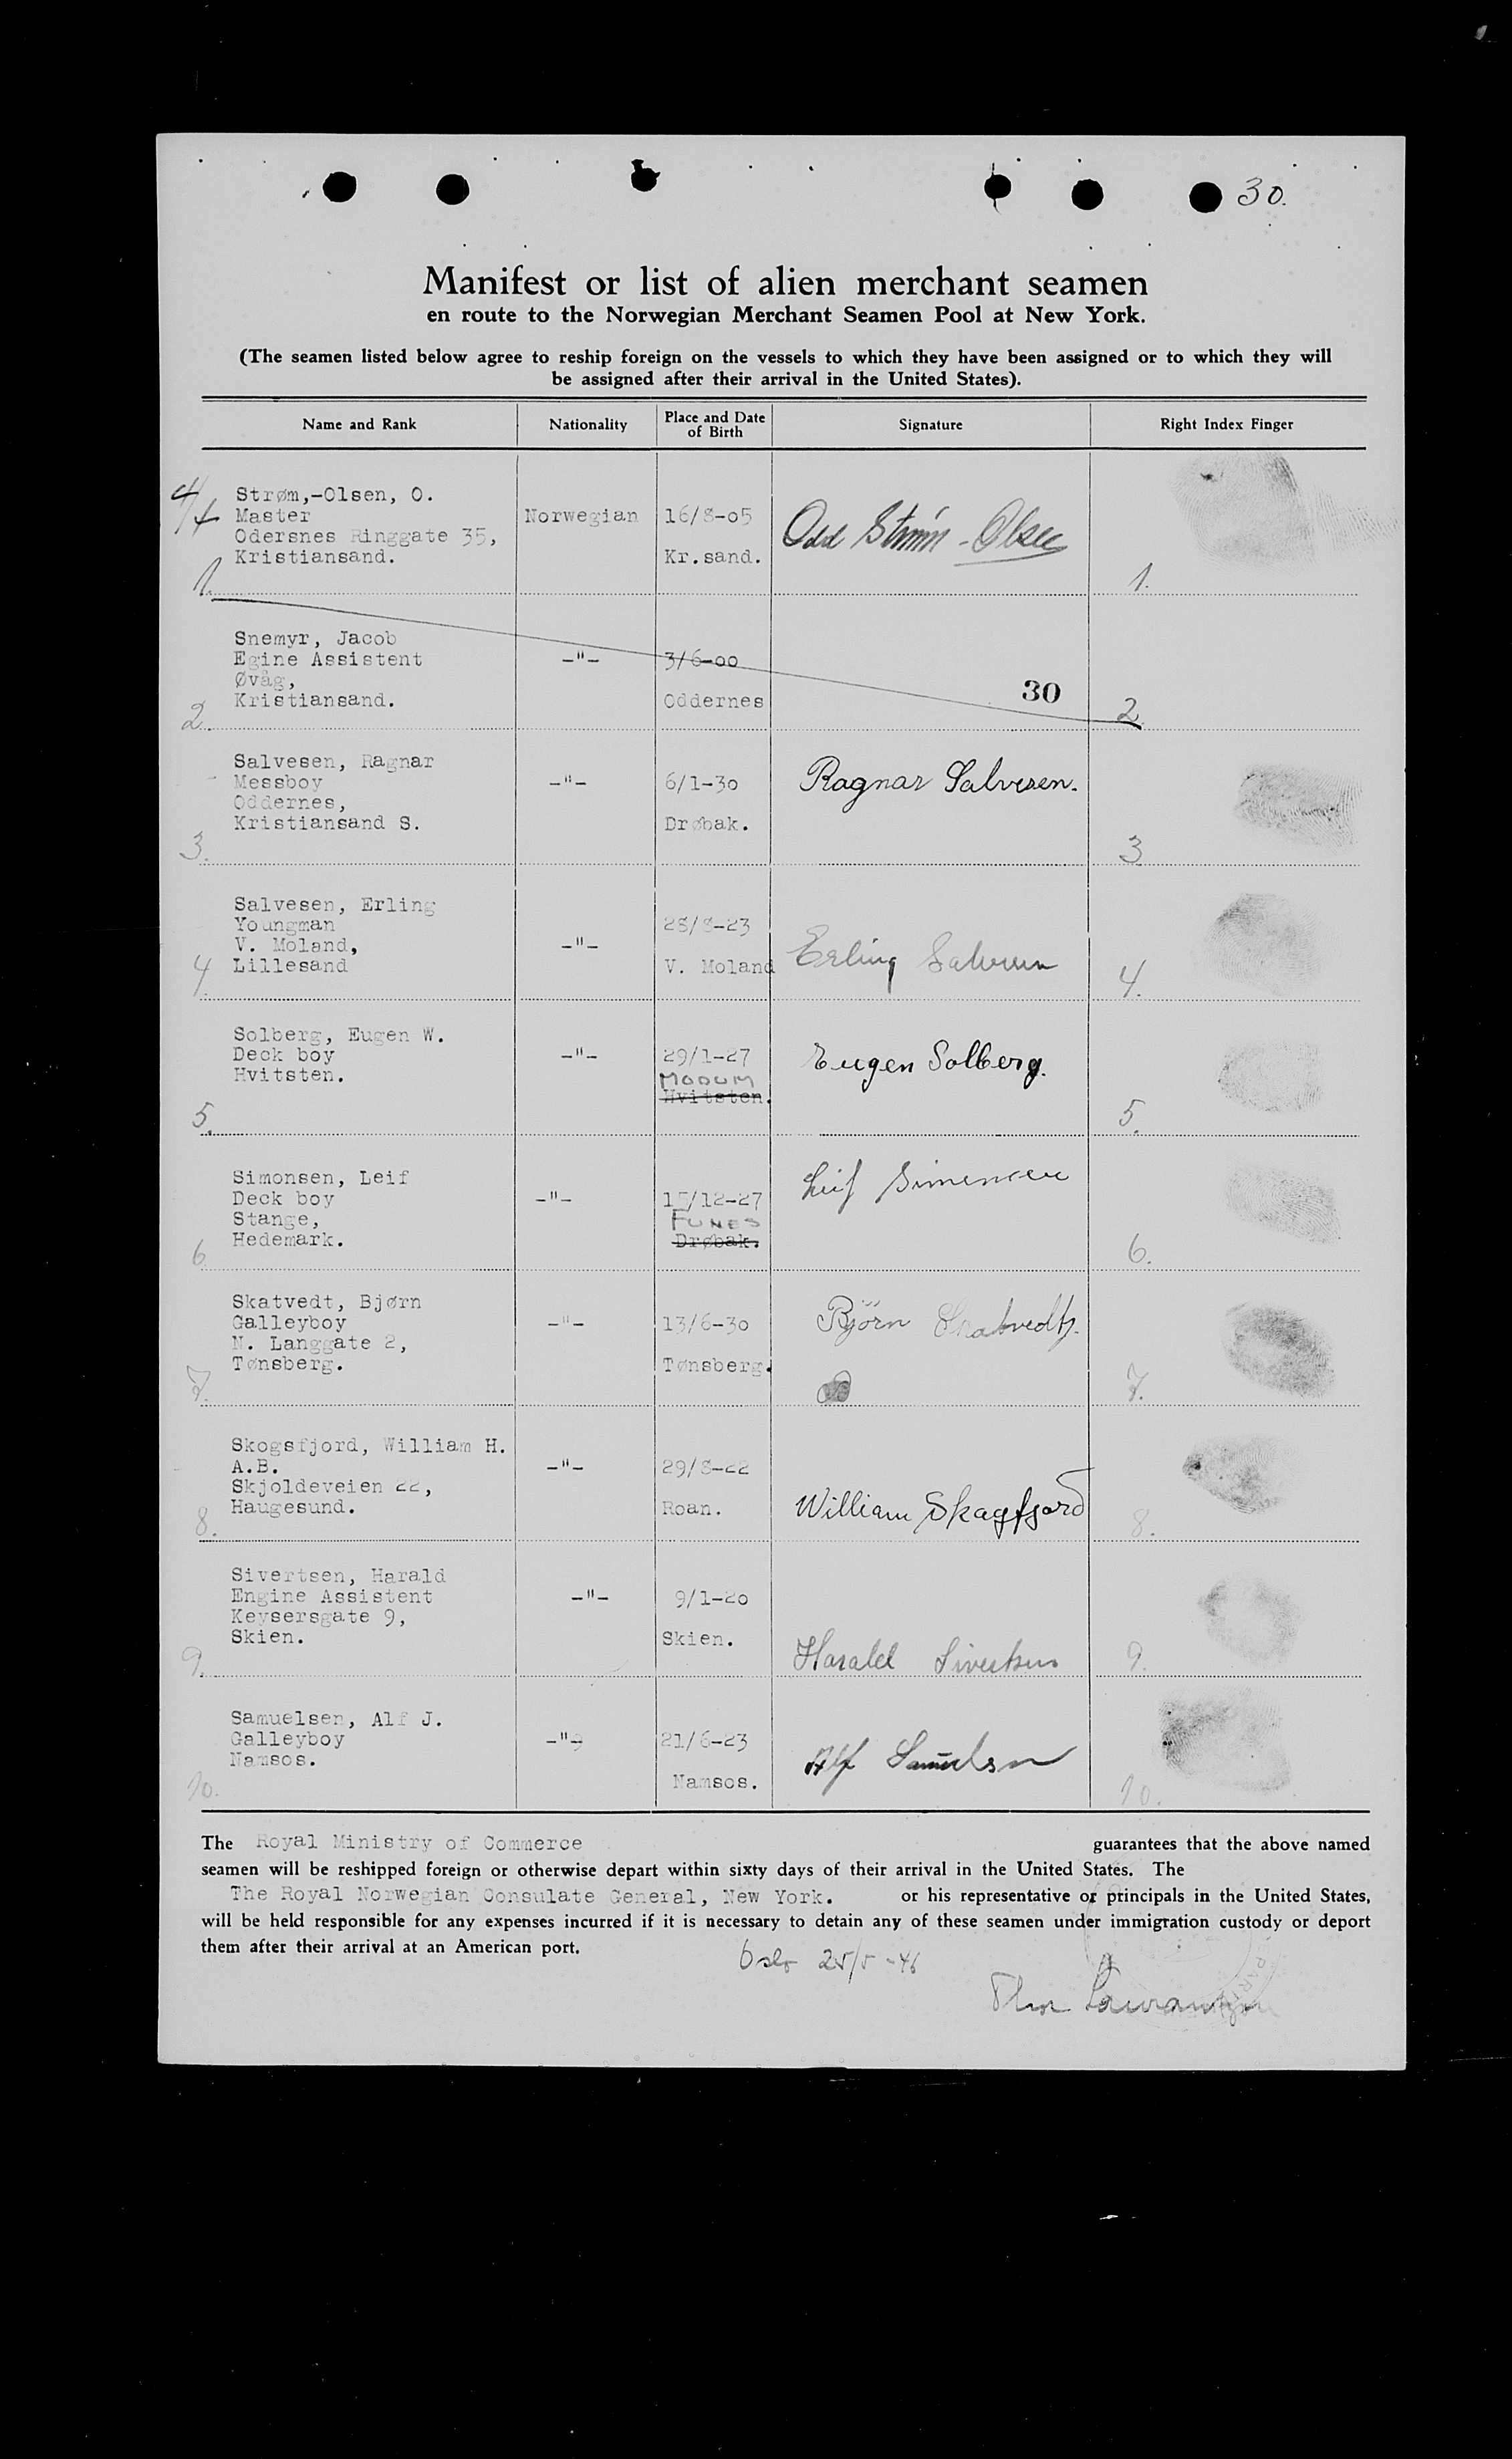 30.
Manifest or list of alien merchant seamen
en route to the Norwegian Merchant Seamen Pool at New York.
(The seamen listed below agree to reship foreign on the vessels to which they have been assigned or to which they will
be assigned after their arrival in the United States).
Name and Rank Nationality Place and Date of Birth Signature Right Index Finger
Strøm,-Olsen, O.
Master Norwegian 16/8-05 Odd Strøm-Olsen
Odersnes Ringgate 35,
Kristiansand. Kr.sand.
1. 1.
Snemyr, Jacob
Egine Assistent -"- 3/6-00
Øvåg,
Kristiansand. Oddernes 30
2. 2.
Salvesen, Ragnar
Messboy -"- 6/1-30 Ragnar Salvesen.
Oddernes,
Kristiansand S. Drøbak.
3. 3
Salvesen, Erling
Youngman 28/8-23
V. Moland, -"- Erling Salvesen
4 Lillesand V. Moland 4.
Solberg, Eugen W.
Deck boy -"- 29/1-27 Eugen Solberg.
Hvitsten. MODUM
Hvitsten.
5. 5.
Simonsen, Leif Leif Simensen
Deck boy -"- /12-27
Stange, FUNES
Hedemark. Drøbak.
6 6.
Skatvedt, Bjørn
Galleyboy -"- 13/6-30 Björn Skatvedt.
N. Langgate 2,
Tønsberg. Tønsberg.
7. 7.
Skogsfjord, William H.
A.B. -"- 29/8-22
Skjoldeveien 22,
Haugesund. Roan. William Skagfjord
8. 8.
Sivertsen, Harald
Engine Assistent -"- 9/1-20
Keysersgate 9,
Skien. Skien.
Harald Sivertsen
9. 9.
Samuelsen, Alf J.
Galleyboy -"- 21/6-23 Alf Samuelsen
Namsos.
Namsos.
10. 10.
The Royal Ministry of Commerce guarantees that the above named
seamen will be reshipped foreign or otherwise depart within sixty days of their arrival in the United States. The
The Royal Norwegian Consulate General, New York. or his representative or principals in the United States,
will be held responsible for any expenses incurred if it is necessary to detain any of these seamen under immigration custody or deport
them after their arrival at an American port.
Oslo 25/5-46